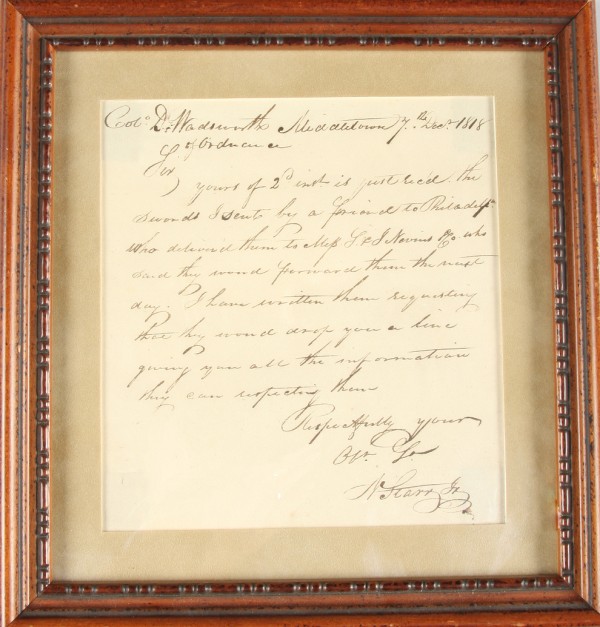 Colo. D. Wadsworth Middletown 7.th Decr. 1818
of Ordnance
Sir
yours of 2d inst is just rec'd the
swords I sent by a friend to Philadelp.
who delivered them to Mess S & J Nevins & Co. who
said they woud forward them the next
day. I have written them requesting
that they woud drop you a line
giving you all the information
they can respecting them
Respectfully your
St.
N. Starr Jr.